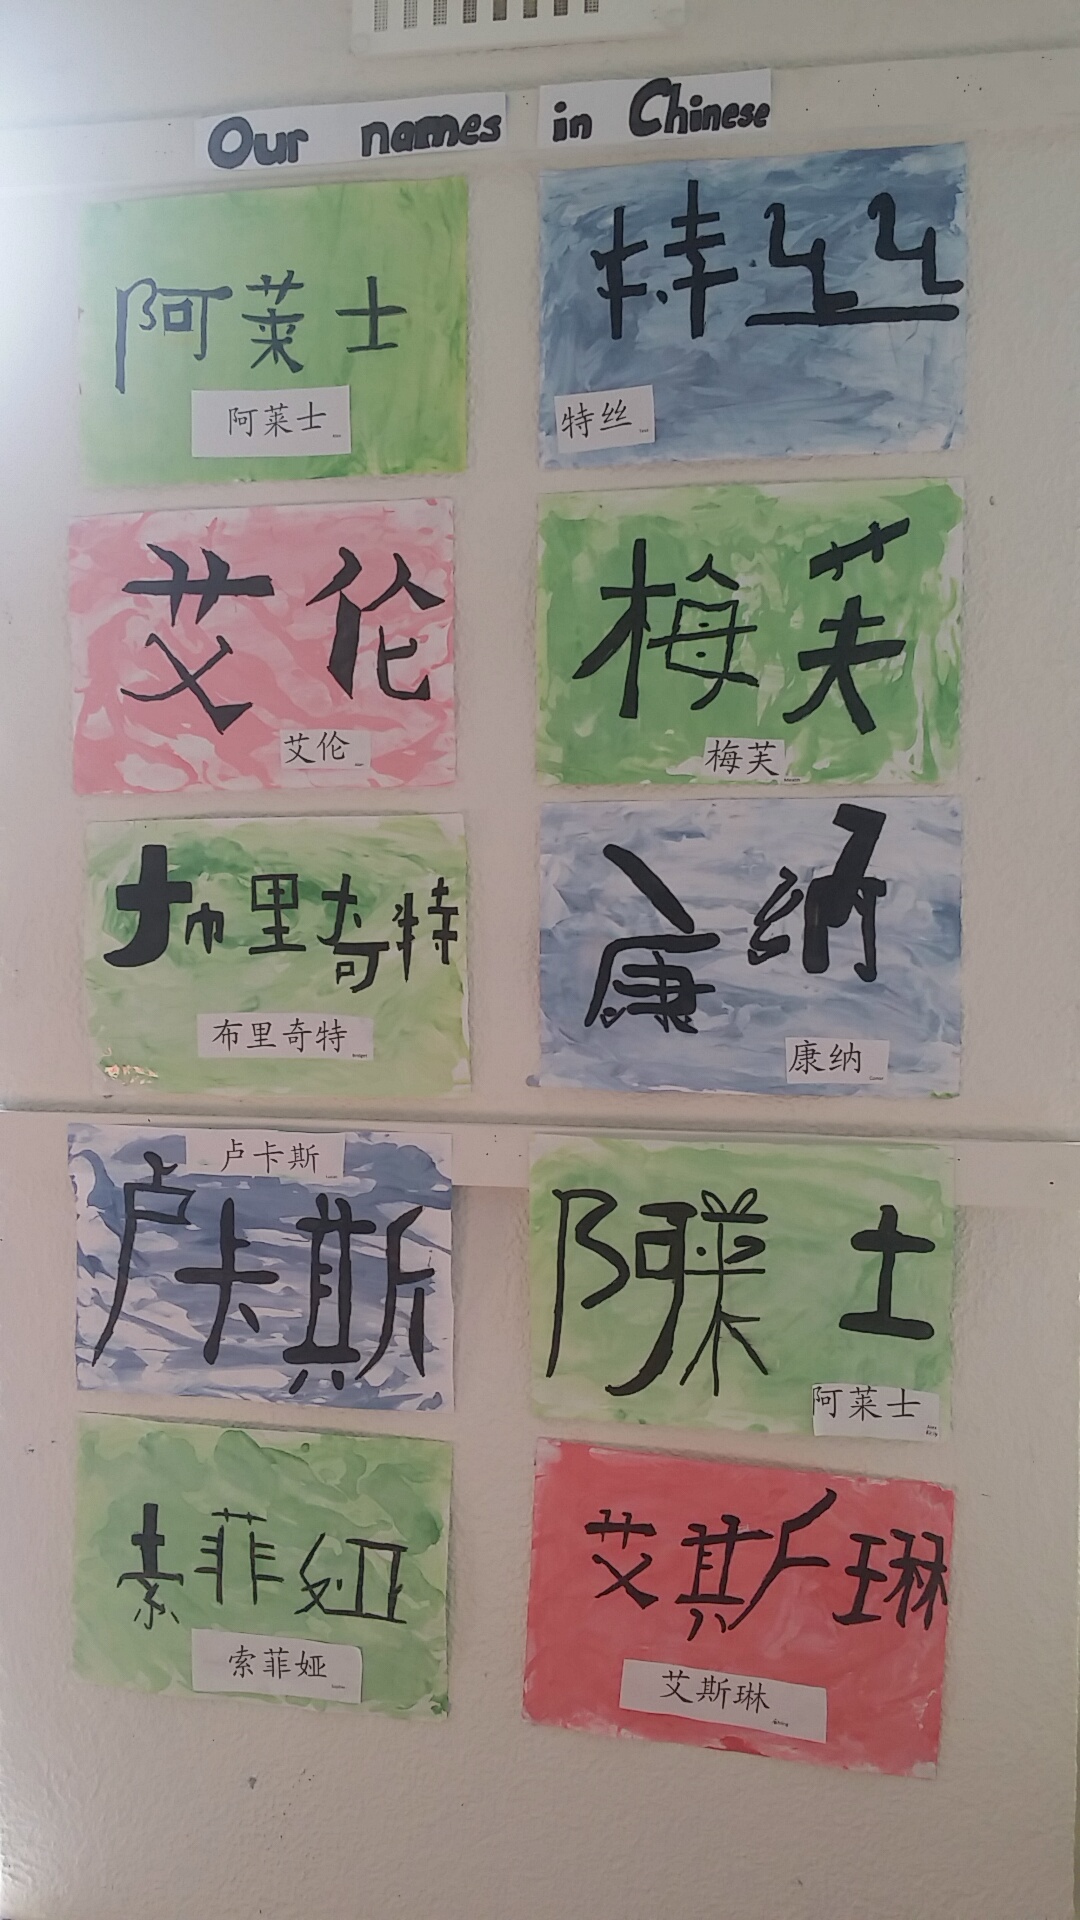 Our names in Chinese
阿莱士
阿莱士
特丝
特丝
艾伦
艾伦
梅芙
梅芙
布里奇特
布里奇特
Bridget
康纳
康纳
Connor
卢卡斯
卢卡斯
阿莱士
阿莱士
索菲娅
索菲娅
艾斯琳
艾斯琳